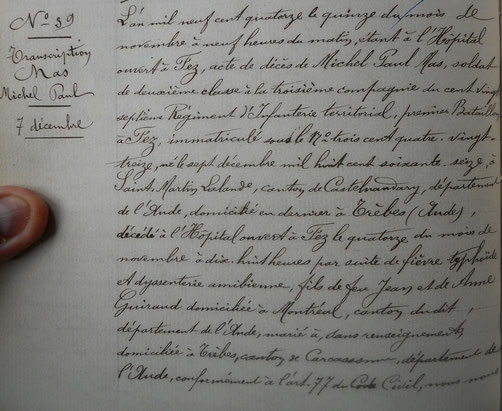 N° 39
Transcription
Mas
Michel Paul
7 décembre
L'an mil neuf cent quatorze le quinze du mois de
novembre à neuf heures du matin, étant à l'Hôpital
ouvert à Fez, acte de décès de Michel Paul Mas, soldat
de deuxième classe à la troisième compagnie du cent vingt
septième Régiment d'Infanterie territorial, premier Bataillon
à Fez, immatriculé sous le N° trois cent quatre-vingt-
treize, né le sept décembre mil huit cent soixante-seize, à
Saint-Martin Lalande, canton de Castelnaudary, département
de l'Aude, domicilié en dernier à Trèbes (Aude),
décédé à l'Hôpital ouvert à Fez le quatorze du mois de
novembre à dix-huit heures par suite de fièvre typhoïde
et dyssenterie amibienne, fils de feu Jean et de Anne
Guiraud domiciliée à Montréal, canton du dit,
département de l'Aude, marié à, dans renseignements
domiciliée à Trèbes, canton de Carcassonne, département de
l'Aude, conformément à l'art. 77 du Code Civil, nous nous